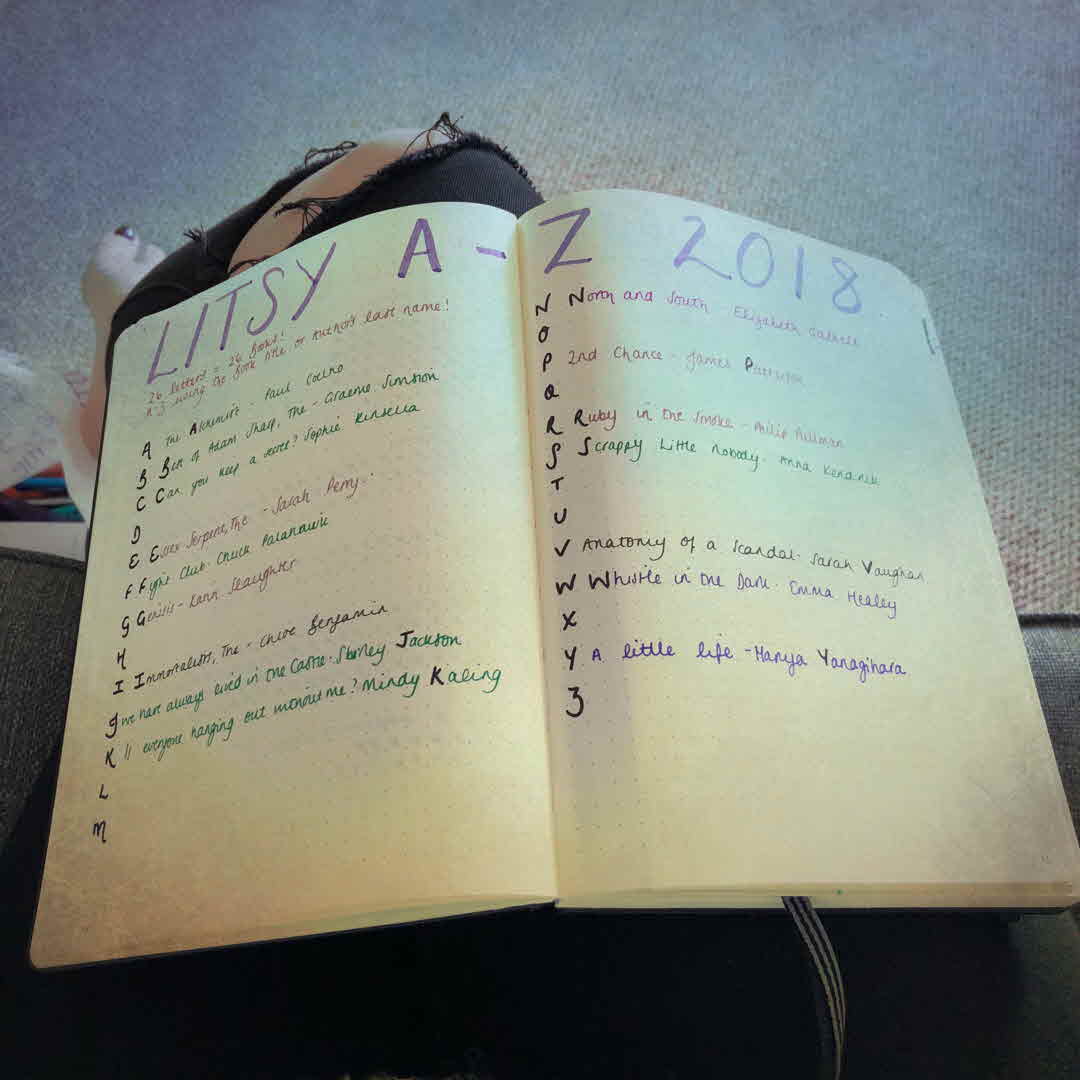 LITSY A - Z 2018
26 letters = 26 Books!
A-Z using the Book title or Author's last name!
A The Alchemist - Paul Coelho
B Best of Adam Sharp, The - Graeme Simsion
C Can you keep a secret? Sophie Kinsella
D
E Essex Serpent, The - Sarah Perry.
F Fight Club - Chuck Palahnuik
G Genisis - Karin Slaughter
H
I Immortalists, The - Chloe Benjamin
J We have always lived in the Castle - Shirley Jackson
K Is everyone hanging out without me? Mindy Kaling
L
M
N North and South - Elizabeth Gaskell
O
P 2nd Chance - James Patterson
Q
R Ruby in the Smoke - Philip Pullman
S Scrappy Little Nobody - Anna Kendrick
T
U
V Anatomy of a Scandal - Sarah Vaughan
W Whistle in the Dark - Emma Healey
X
Y A little life - Hanya Yanagihara
Z